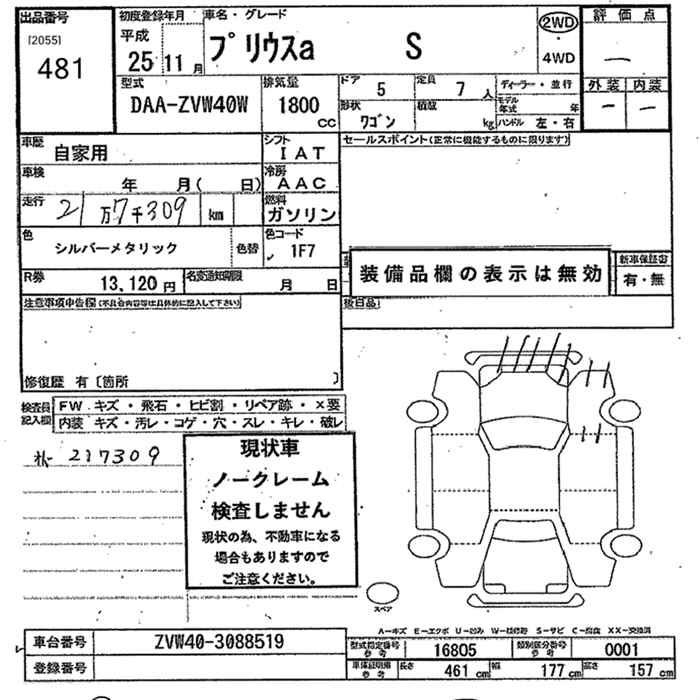 出品番号
[2055]
481
初度登録年月
平成
25年11月
車名・グレード
プリウスa S
2WD
・
4WD
評価点
—
外装 内装
— —
型式
DAA-ZVW40W
排気量
1800
CC
ドア 5
定員 7人
形状 ワゴン
積載 kg
ディーラー・並行
モデル年式 年
ハンドル 左・右
車歴
自家用
シフト
IAT
車検
年 月( 日)
冷房
AAC
走行
21万7千309 km
燃料
ガソリン
色
シルバーメタリック
色替
色コード
1F7
R券
13,120円
名変通知期限
月 日
セールスポイント(正常に機能するものに限ります)
装備品欄の表示は無効
新車保証書
有・無
後日品
注意事項申告欄(不具合内容等は具体的に記入して下さい)
修復歴 有〔箇所 〕
検査員記入欄
FW キズ・飛石・ヒビ割・リペア跡・×要
内装 キズ・汚レ・コゲ・穴・スレ・キレ・破レ
217309
現状車
ノークレーム
検査しません
現状の為、不動車になる
場合もありますので
ご注意ください。
スペア
A―キズ E―エクボ U―凹み W―補修跡 S―サビ C―腐食 XX―交換済
車台番号
ZVW40-3088519
登録番号
型式指定番号参考
16805
類別区分番号参考
0001
車体証明書参考
長さ 461cm
幅 177cm
高さ 157cm